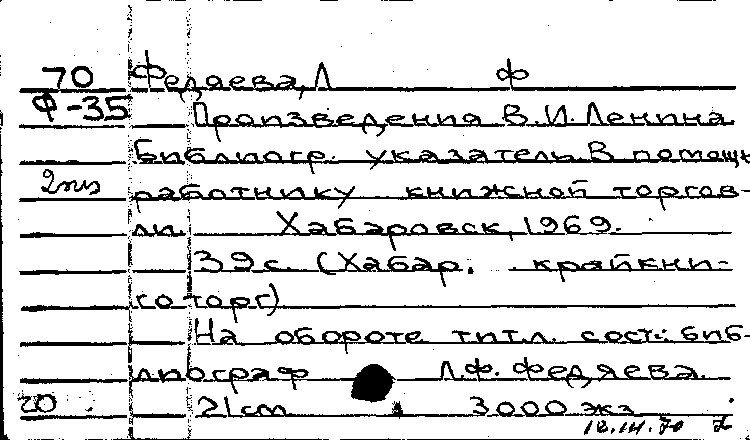 70 Федяева, Л Ф
Ф-35 Произведения В.И. Ленина
Библиогр. указатель. В помощь
2 экз работнику книжной торгов-
ли. Хабаровск, 1969.
39 с. (Хабар. крайкни-
готорг)
На обороте тит.л. сост.: биб-
лиограф Л.Ф. Федяева.
20 21 cm 3000 экз